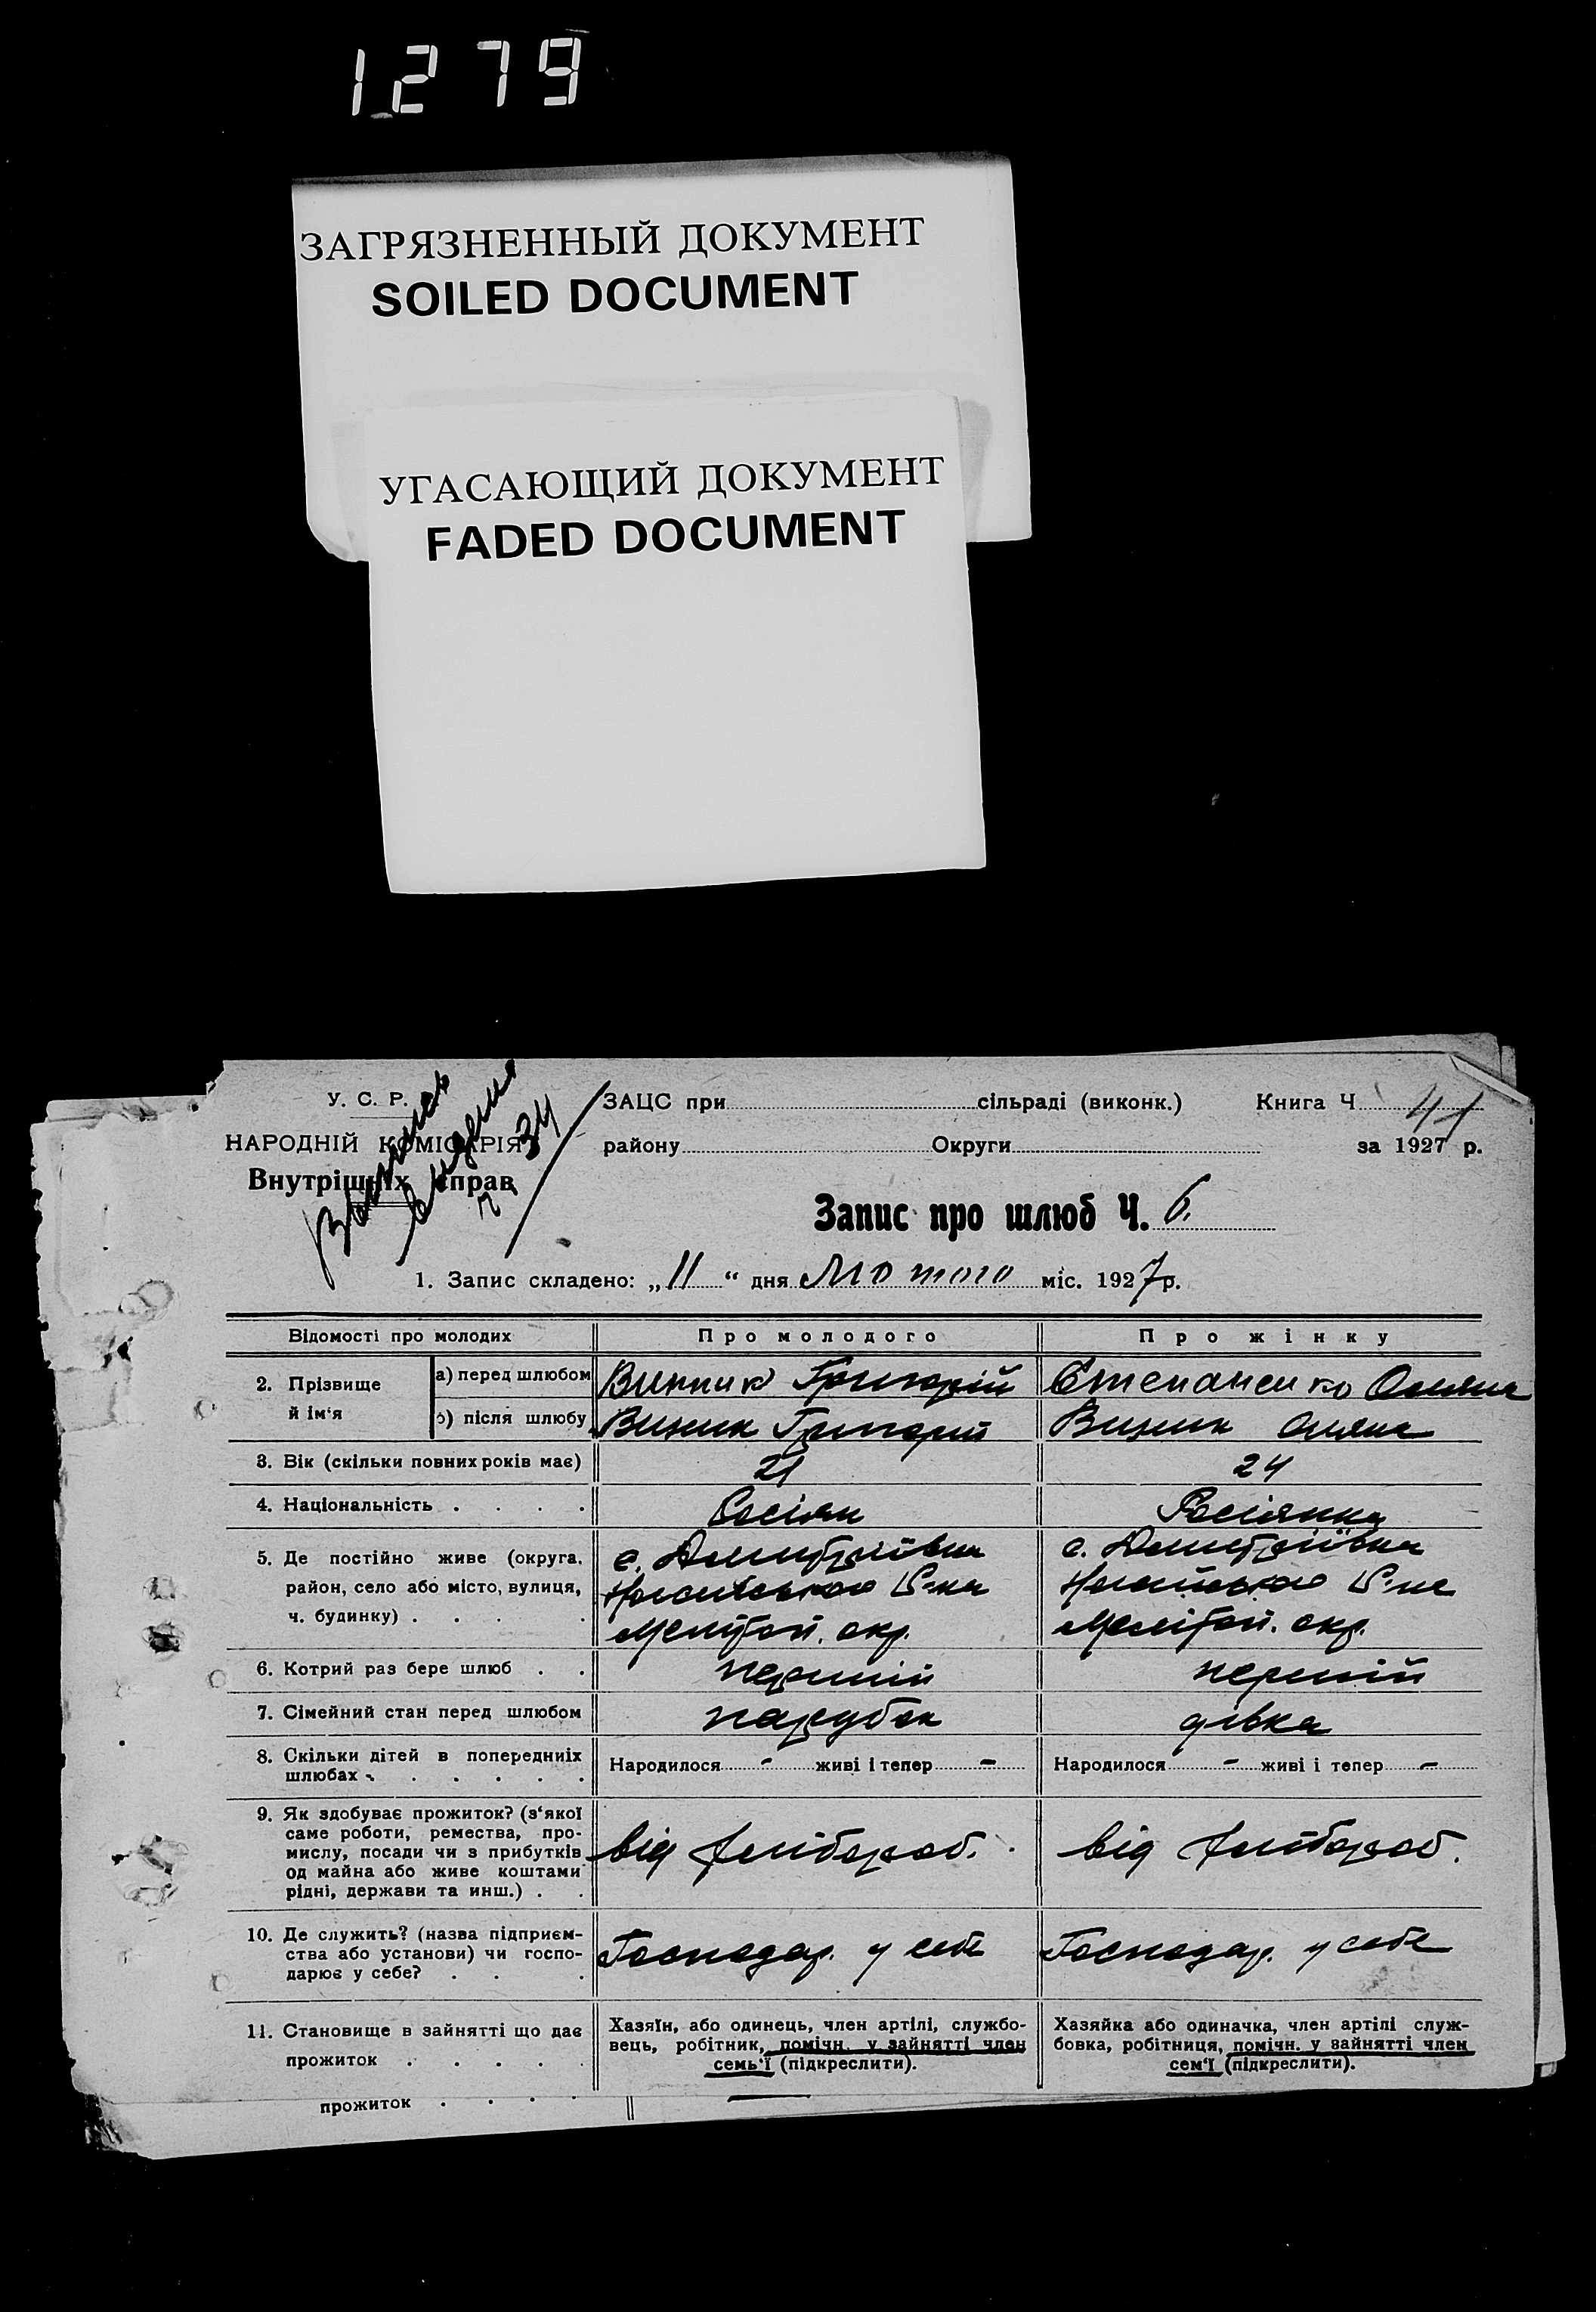 1279
ЗАГРЯЗНЕННЫЙ ДОКУМЕНТ
SOILED DOCUMENT
УГАСАЮЩИЙ ДОКУМЕНТ
FADED DOCUMENT
У. С. Р.
НАРОДНІЙ КОМІСАРІЯТ
Внутрішніх справ
34
ЗАЦС при сільраді (виконк.) Книга Ч 41
району Округи за 1927 р.
Запис про шлюб Ч. 6.
1. Запис складено: „11“ дня Лютого міс. 1927р.
Відомості про молодих
Про молодого
Про жінку
2. Прізвище й ім‘я
а) перед шлюбом
Винник Григорій
Степаненко
б) після шлюбу
Винник Григорій
Винник
3. Вік (скільки повних років має)
21
24
4. Національність . . . .
Росіян
Росіянка
5. Де постійно живе (округа,
район, село або місто, вулиця,
ч. будинку) . . . .
с. Дмитріївка
Ногайського Р-на
Мелітоп. окр.
с. Дмитріївка
Ногайського Р-на
Мелітоп. окр.
6. Котрий раз бере шлюб . .
перший
перший
7. Сімейний стан перед шлюбом
парубок
дівка
8. Скільки дітей в попередниіх
шлюбах . . . . . .
Народилося - живі і тепер -
Народилося - живі і тепер -
9. Як здобуває прожиток? (з‘якої
саме роботи, ремества, про-
мислу, посади чи з прибутків
од майна або живе коштами
рідні, держави та инш.) . .
від хлібороб.
від хлібороб.
10. Де служить? (назва підприєм-
ства або установи) чи госпо-
дарює у себе? . . .
Господар. у себе
Господар. у себе
11. Становище в зайнятті що дає
прожиток . . . . .
Хазяїн, або одинець, член артілі, службо-
вець, робітник, помічн. у зайнятті член
семь‘ї (підкреслити).
Хазяйка або одиначка, член артілі служ-
бовка, робітниця, помічн. у зайнятті член
сем‘ї (підкреслити).
прожиток . . . .